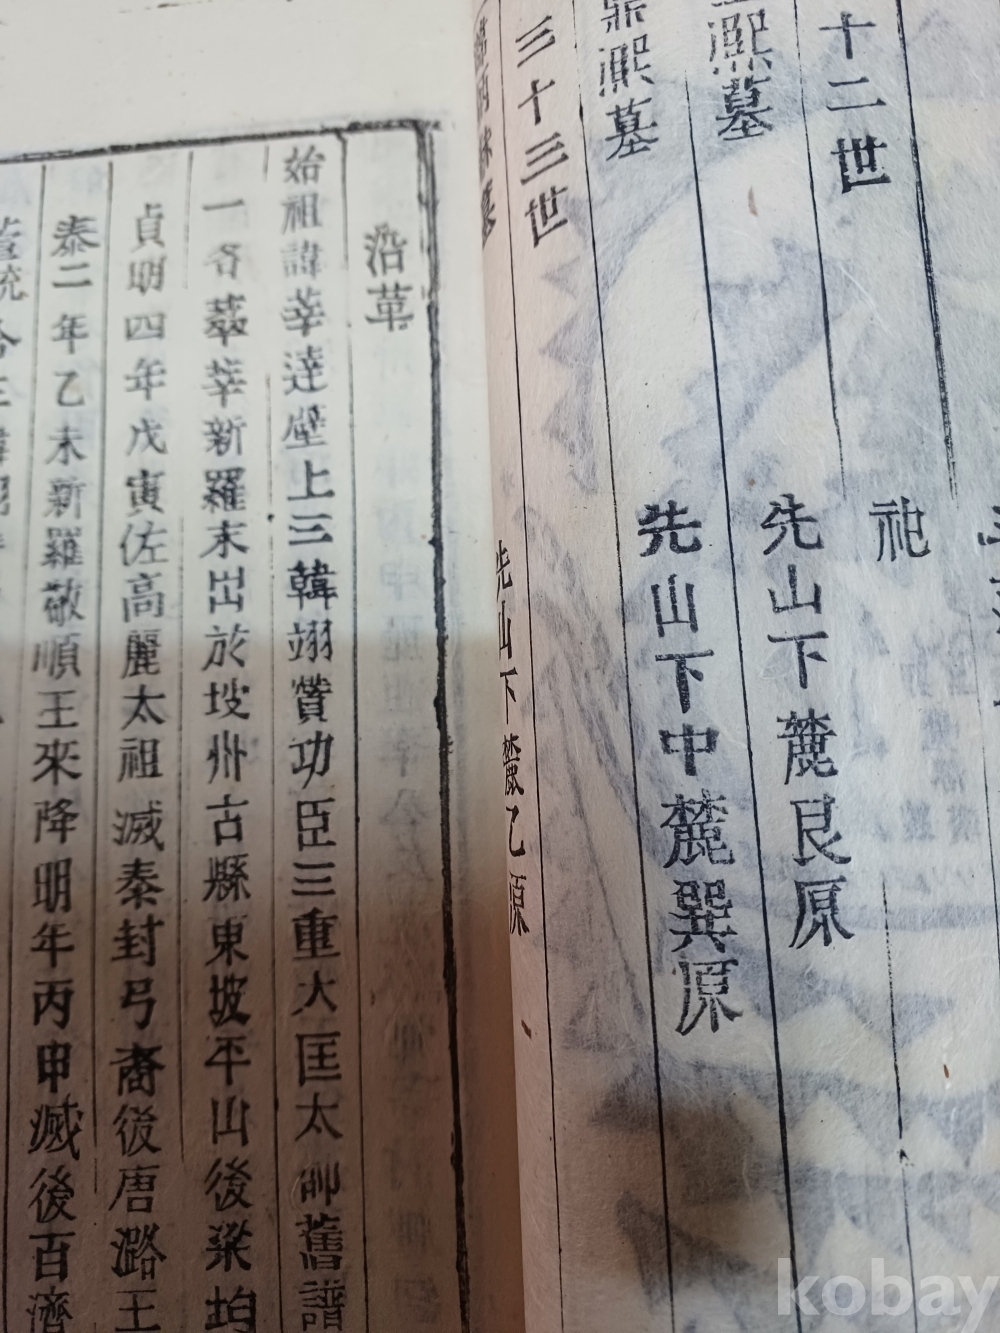 十二世
祀
熙墓
先山下麓艮原
熙墓
先山下中麓巽原
三十三世
先山下麓乙原
沿革
始祖諱莘達壁上三韓翊贊功臣三重大匡太師舊譜
一名莘新羅末出於坡州古縣東坡平山後梁均
貞明四年戊寅佐高麗太祖滅泰封弓裔後唐潞王
泰二年乙未新羅敬順王來降明年丙申滅後百濟
統合三韓
kobay